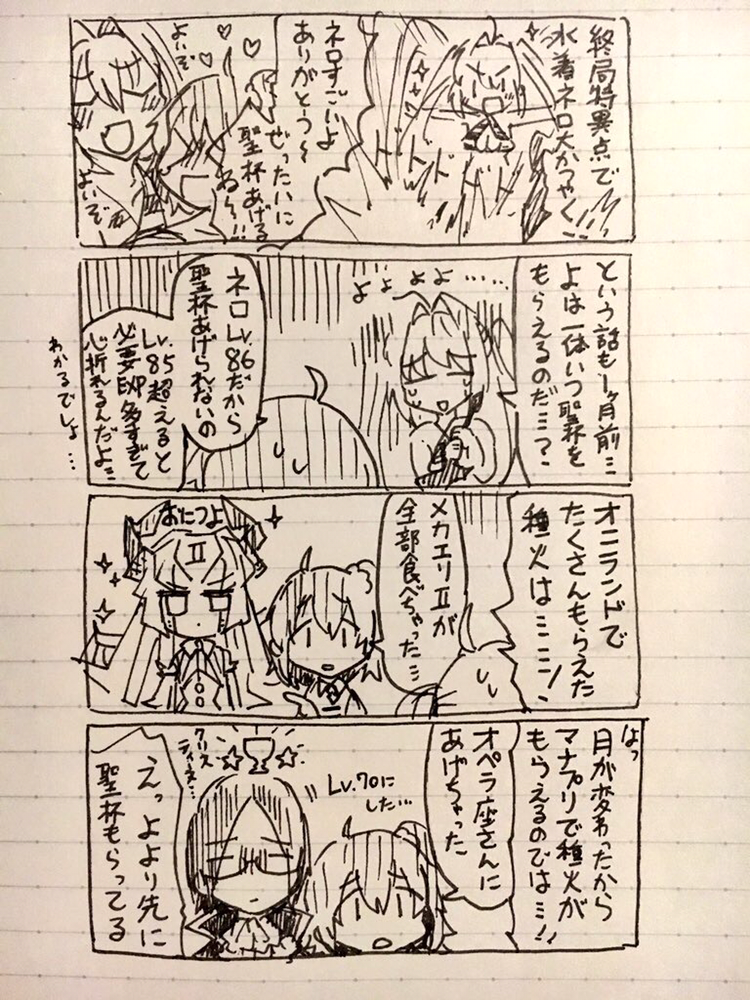 終局特異点で
水着ネロ大かつやく!!
ドドドド
ネロすごいよ
ありがとう〜
ぜったいに
聖杯あげる
ね〜!!
よいぞ
よいぞ
という話も1ヶ月前…
よは一体いつ聖杯を
もらえるのだ…?
よよよよ……
ネロ
Lv.
86だから
聖杯あげられないの
Lv.
85超えると
必要EXP多すぎて
心折れるんだよ…
わかるでしょ…
オニランドで
たくさんもらえた
種火は……!
メカエリⅡが
全部食べちゃった…
おにつよ
Ⅱ
はっ
月が変わったから
マナプリで種火が
もらえるのでは…!!
オペラ座さんに
あげちゃった
Lv.70に
した…
クリス
ティーヌ…
えっよより先に
聖杯もらってる